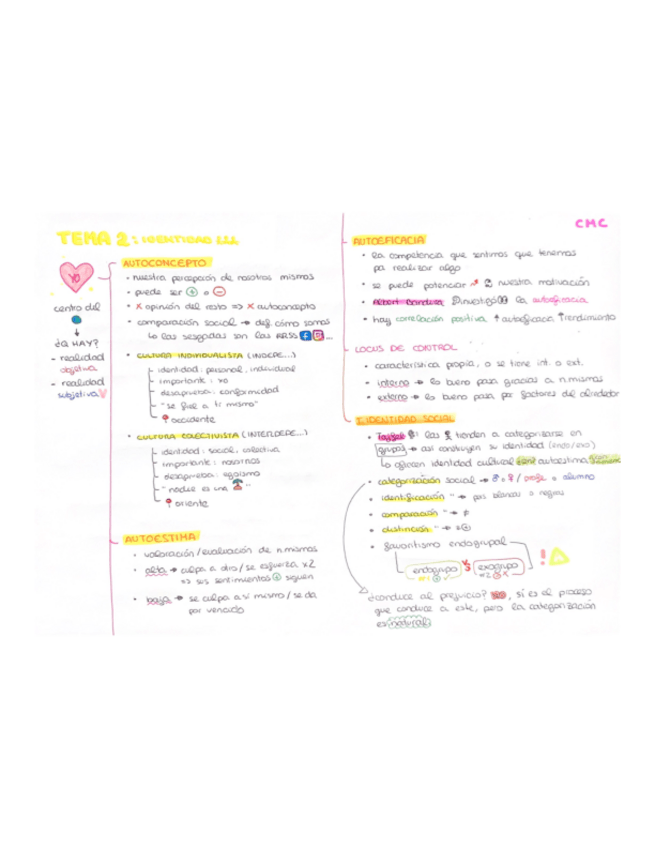 CMC
TEMA 2: IDENTIDAD
YO
centro del
¿Q HAY?
- realidad
objetiva
- realidad
subjetiva
AUTOCONCEPTO
• nuestra percepción de nosotros mismos
• puede ser + o -
• x opinión del resto => x autoconcepto
• comparación social → def. cómo somos
↳ las sesgadas son las RRSS
• CULTURA INDIVIDUALISTA (INDEPE...)
identidad: personal, individual
importante: yo
desaprueba: conformidad
"se fiel a ti mismo"
occidente
• CULTURA COLECTIVISTA (INTERDEPE...)
identidad: social, colectiva
importante: nosotros
desaprueba: egoísmo
"nadie es una"
oriente
AUTOESTIMA
• valoración/evaluación de n.mismos
• alta → culpa a otro/se esfuerza x2
=> sus sentimientos + siguen
• baja → se culpa a sí mismo/se da
por vencido
AUTOEFICACIA
• la competencia que sentimos que tenemos
pa realizar algo
• se puede potenciar nuestra motivación
• Albert Bandura investigó la autoeficacia
• hay correlación positiva ↑autoeficacia ↑rendimiento
LOCUS DE CONTROL
• característica propia, o se tiene int. o ext.
• interno → lo bueno pasa gracias a n.mismos
• externo → lo bueno pasa por factores del alrededor
I. IDENTIDAD SOCIAL
• Tajfel: las tienden a categorizarse en
grupos → así construyen su identidad (endo/exo)
↳ ofrecen identidad cultural autoestima
• categorización social → ♂ o ♀ / profe o alumno
• identificación " → por blancos o negros
• comparación " → ≠
• distinción " →
• favoritismo endogrupal
endogrupo vs exogrupo
¿conduce al prejuicio? NO, sí es el proceso
que conduce a este, pero la categorización
es natural